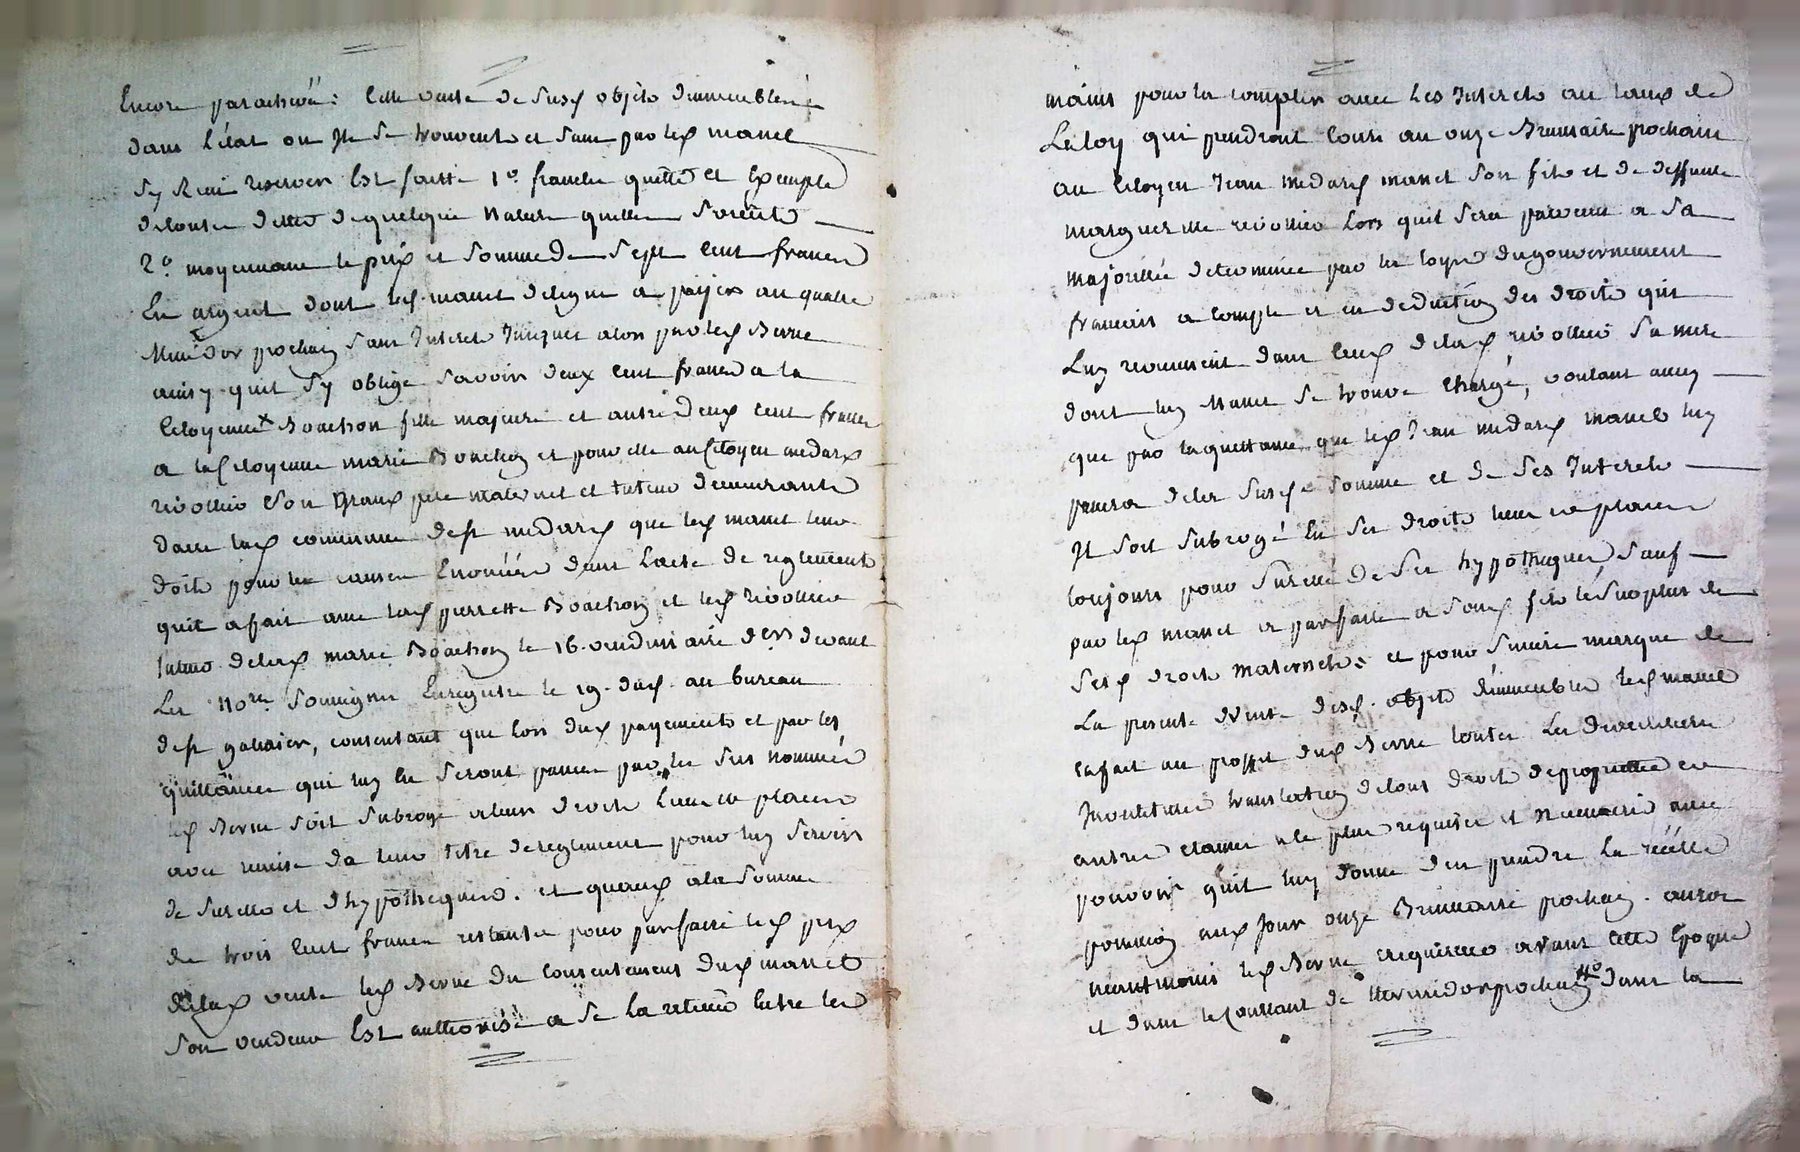 Encore parachevé: cette vente de susd objets dimmeubles
dans l'état ou Ils se trouvent et sans par led manel
sy Rien reserver Est faitte 1º franche quitte et Exempte
detoutes dettes dequelque Nature quelles soient
2º moyennant le prix et somme de sept cent francs
En argent dont led manel a payer au quatre
Messidor prochain sans Interets Jusques alors par led Berne
ainsy quil sy oblige savoir deux cent francs a la
Citoyenne Boachon fille majeure et autre deux cent francs
a la Citoyenne marie Boachon et pour elle au Citoyen medard
rivollier son Grand pere maternel et tuteur demeurants
dans lad commune de st medard que led manel leur
doit pour les causes Enoncées dans l'acte de reglement
quil a fait avec lesd pierrette Boachon et led rivollier
tuteur delad marie Boachon le 16 vendemiaire dern devant
Les Nore soussignés Enregistré le 19 dud au bureau
de st galmier, consentant que lors dud payements et par les
quittances qui luy en seront passées par les sus nommés
led Berne soit subrogé a leurs droits Lieu et place
avec remise de leur titre de reglement pour luy servir
de sureté et d'hypotheques. et quand a la somme
de trois cent francs restante pour parfaire led prix
delad vente led Berne du consentement dud manel
son vendeur Est authorisé a se la retenir Entre les
mains pour la compter avec Les Interets au taux de
La loy qui prendront cours au onze Brumaire prochain
au Citoyen Jean medard manel son fils et de deffunte
marguerite rivollier Lors quil sera parvenu a sa
majorité determinée par les loyx dugouvernement
francais a compte et en deduction des droits qui
Luy reviennent dans ceux delad rivollier sa mere
dont luy Manel se trouve chargé, voulant aussy
que par la quittance que led Jean medard manel luy
passera delad susd somme et de ses Interets
Il soit subrogé En ses droits lieu et place
toujours pour sureté de ses hypotheques sauf
par led manel a parfaire a sond fils le surplus de
sesd droits maternels: et pour sincere marque de
La presente vente desd objets dimmeubles led manel
a fait au proffit dud Berne toutes Les
translation de tous droits de proprietté et
autres clauses de plus requises et Necessaires avec
pouvoir quil luy donne den prendre La réelle
possession aud Jour onze Brumaire prochain
neantmoins led Berne avant cette Epoque
et dans le Courant de thermidor prochain dans la